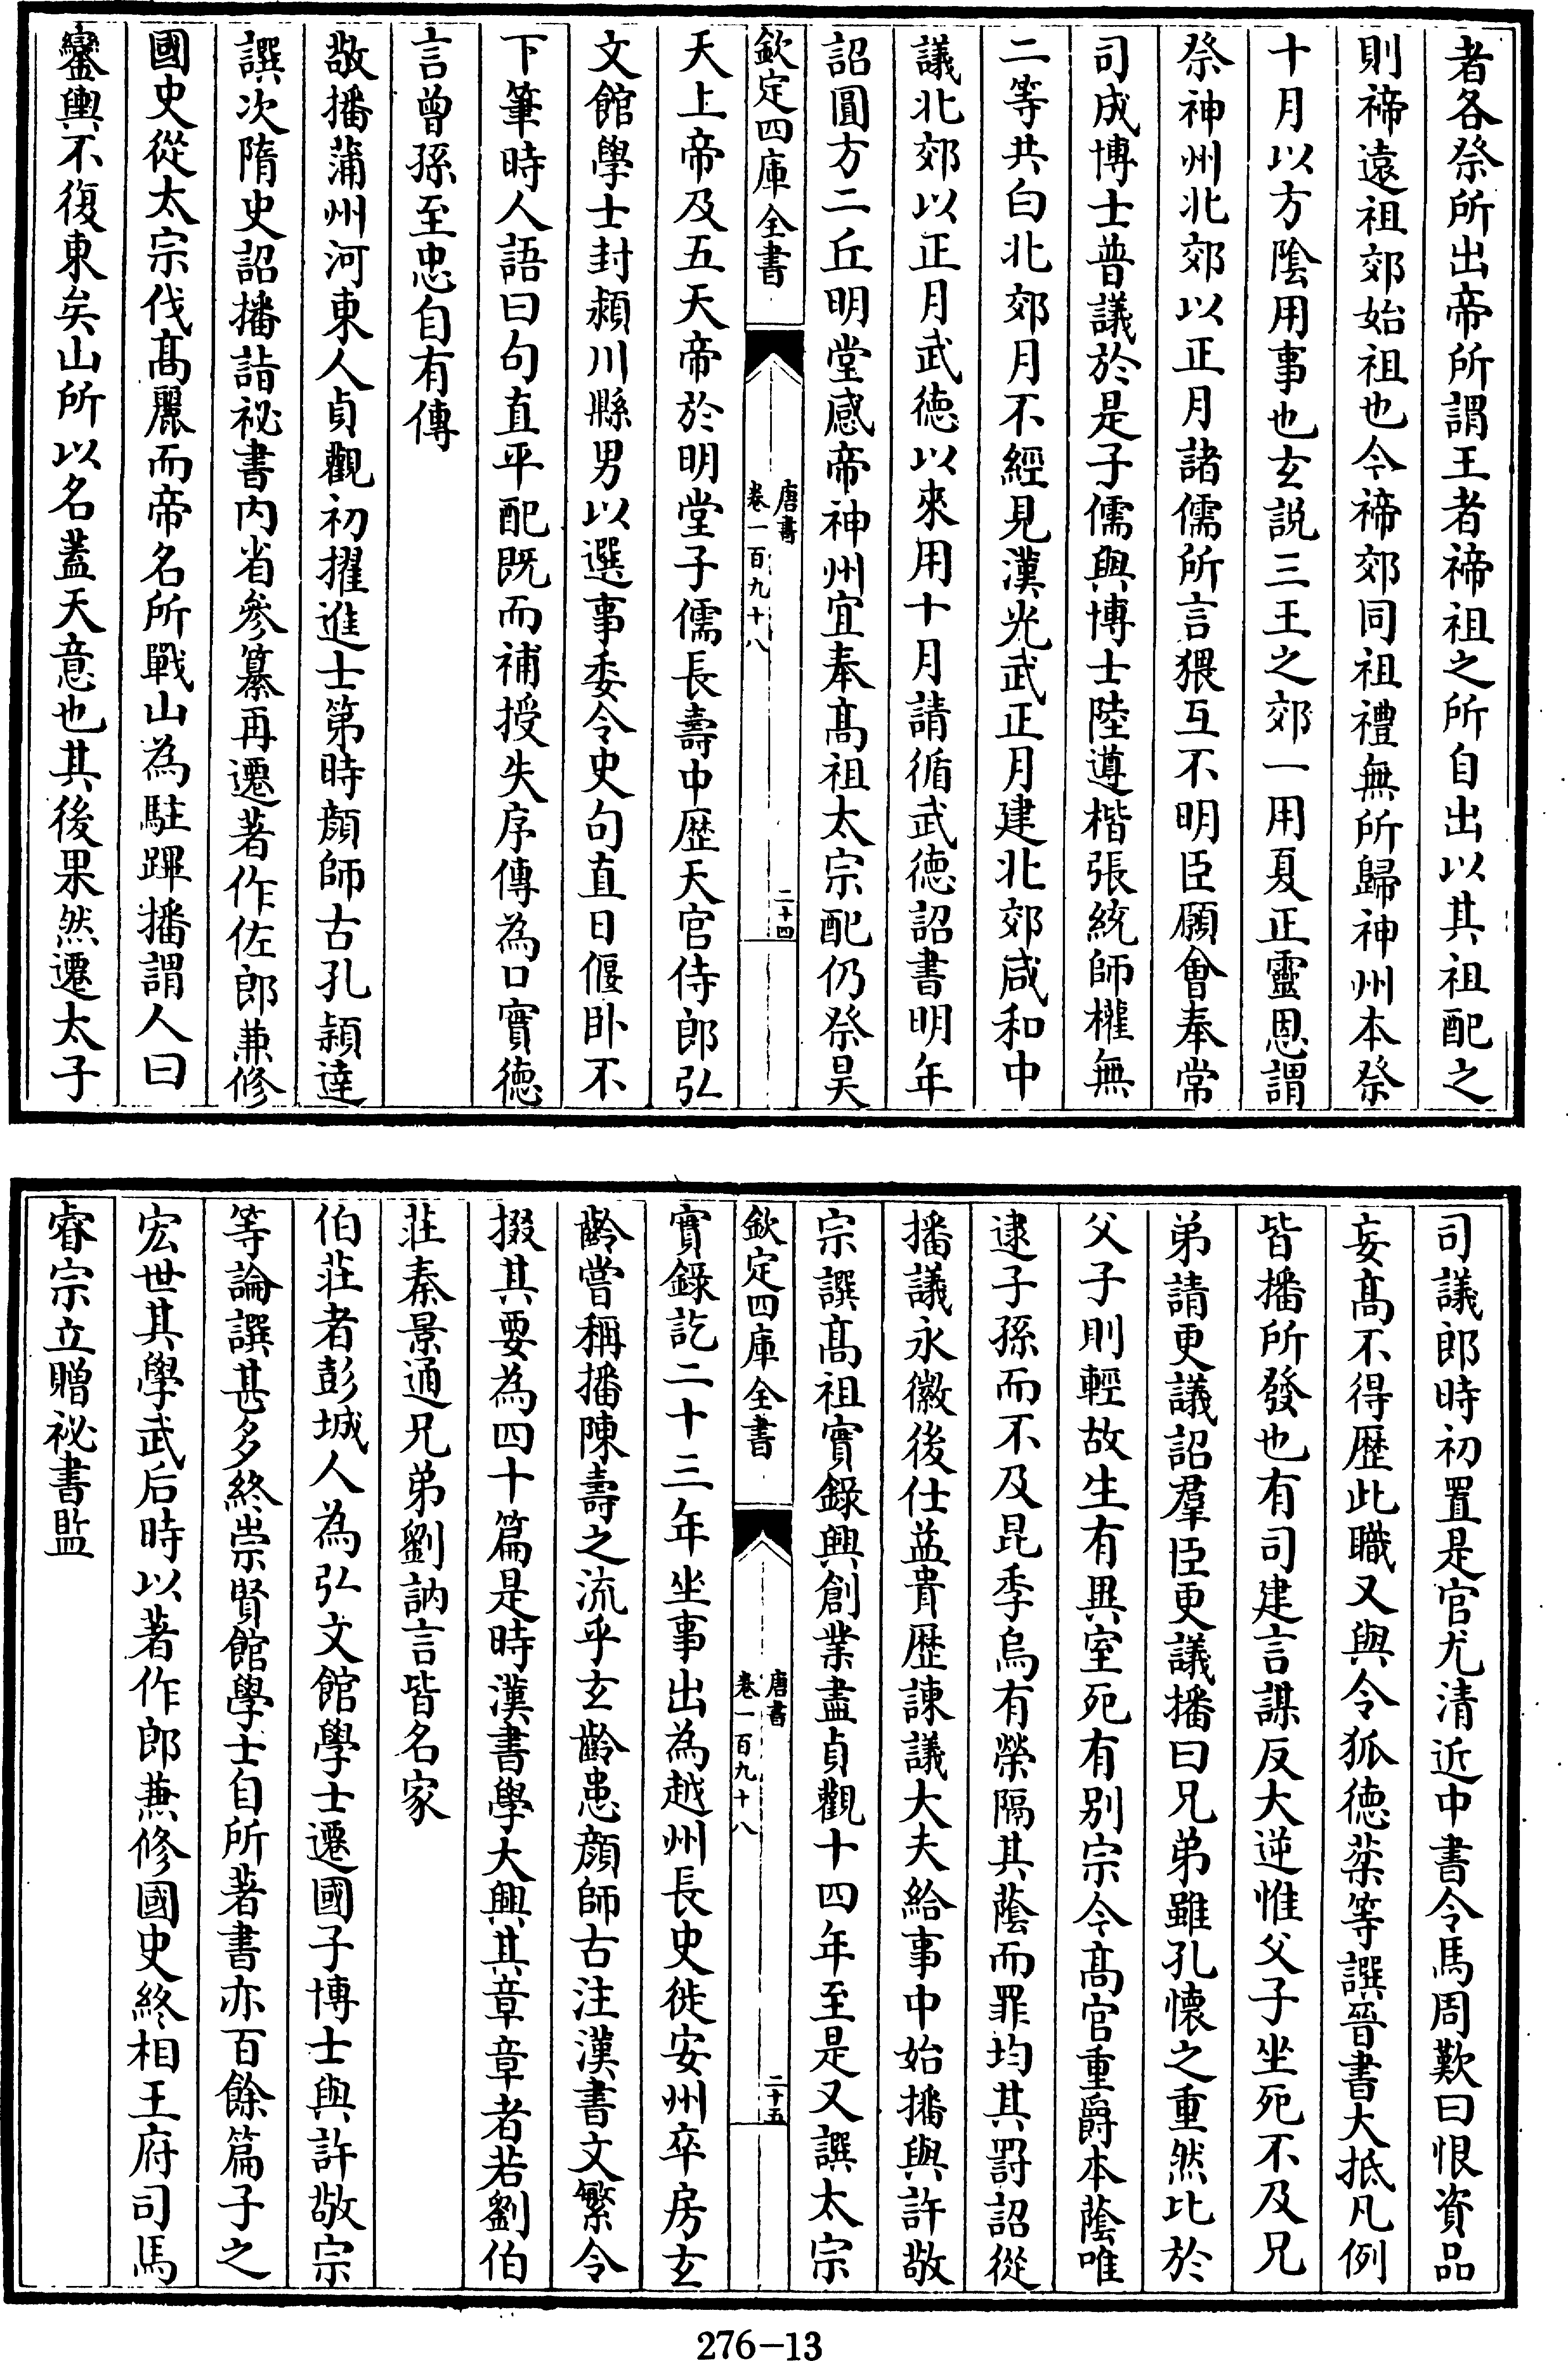 者各祭所出帝所謂王者禘祖之所自出以其祖配之
則禘遠祖郊始祖也今禘郊同祖禮無所歸神州本祭
十月以方陰用事也玄説三王之郊一用夏正靈恩謂
祭神州北郊以正月諸儒所言猥互不明臣願會奉常
司成博士普議於是子儒與博士陸遵楷張統師權無
二等共白北郊月不經見漢光武正月建北郊咸和中
議北郊以正月武德以來用十月請循武德詔書明年
詔圓方二丘明堂感帝神州宜奉髙祖太宗配仍祭昊
欽定四庫全書
唐書
卷一百九十八
二十四
天上帝及五天帝於明堂子儒長壽中歴天官侍郎弘
文館學士封潁川縣男以選事委令史句直日偃卧不
下筆時人語曰句直平配既而補授失序傳為口實德
言曾孫至忠自有傳
敬播蒲州河東人貞觀初擢進士第時顔師古孔穎達
譔次隋史詔播詣祕書内省參纂再遷著作佐郎兼修
國史從太宗伐髙麗而帝名所戰山為駐蹕播謂人曰
鑾輿不復東矣山所以名蓋天意也其後果然遷太子
司議郎時初置是官尤清近中書令馬周歎曰恨資品
妄髙不得歴此職又與令狐德棻等譔晉書大抵凡例
皆播所發也有司建言謀反大逆惟父子坐死不及兄
弟請更議詔羣臣更議播曰兄弟雖孔懷之重然比於
父子則輕故生有異室死有別宗今髙官重爵本蔭唯
逮子孫而不及昆季烏有榮隔其蔭而罪均其罸詔從
播議永徽後仕益貴歴諫議大夫給事中始播與許敬
宗譔髙祖實錄興創業盡貞觀十四年至是又譔太宗
欽定四庫全書
唐書
卷一百九十八
二十五
實錄訖二十三年坐事出為越州長史徙安州卒房玄
齡嘗稱播陳壽之流乎玄齡患顔師古注漢書文繁令
掇其要為四十篇是時漢書學大興其章章者若劉伯
莊秦景通兄弟劉訥言皆名家
伯莊者彭城人為弘文館學士遷國子博士與許敬宗
等論譔甚多終崇賢館學士自所著書亦百餘篇子之
宏世其學武后時以著作郎兼修國史終相王府司馬
睿宗立贈祕書監
276-13